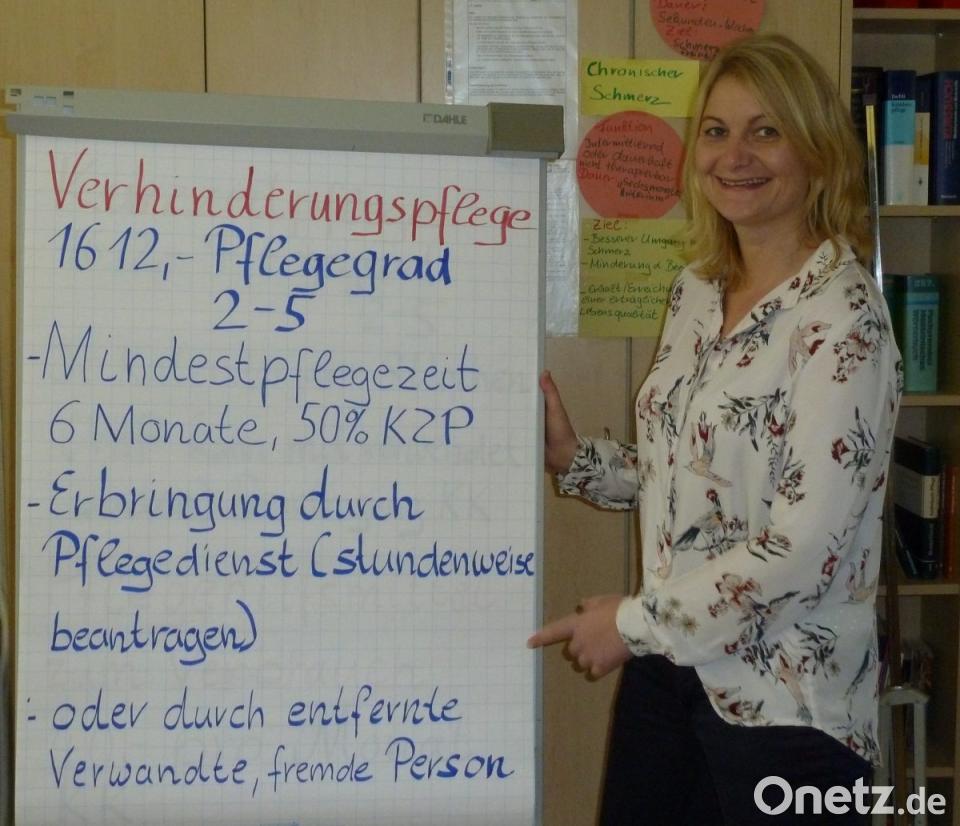 DAHLE
Verhinderungspflege
1612,- Pflegegrad
2-5
- Mindestpflegezeit
6 Monate, 50% KZP
- Erbringung durch
Pflegedienst (stundenweise
beantragen)
- oder durch entfernte
Verwandte, fremde Person
Dauer:
Sekunden-Woche
Ziel:
Chronischer
Schmerz
Funktion
Intermittierend
oder dauerhaft
nicht therapierbar
Ziel:
- Besserer Umgang
Schmerz
- Minderung d.
einer erträglichen
Lebensqualität
Onetz.de